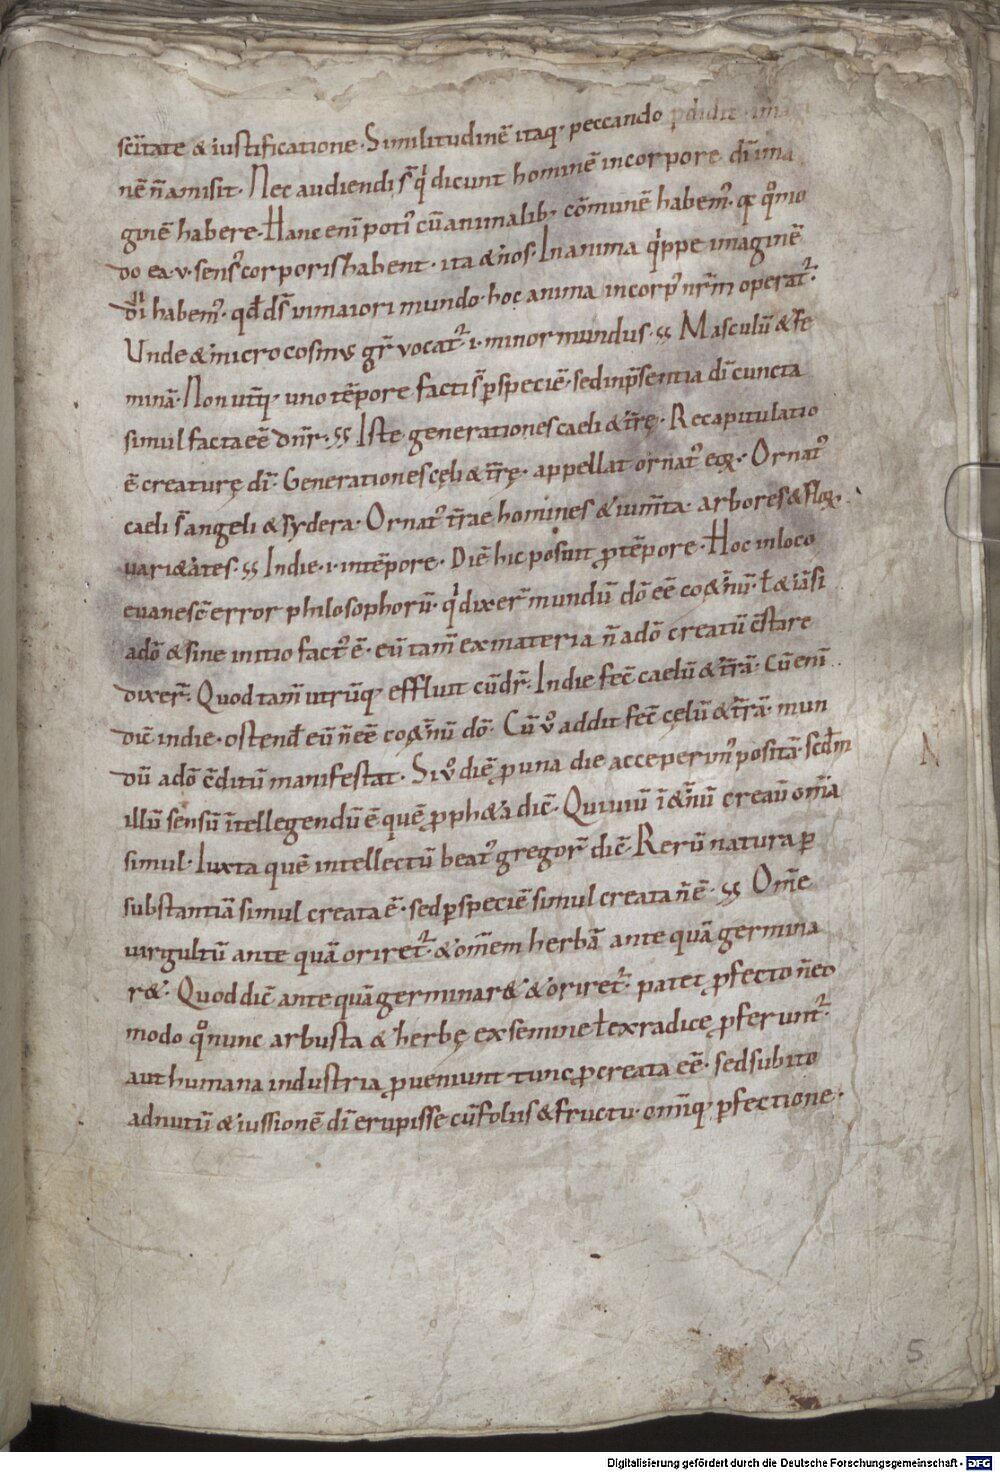 scītate & iustificatione· Similitudinē itaq· peccando pdidit· imagi
nē n̄ amisit· Nec audiendi s̄ q̇ dicunt hominē incorpore dī ima
ginē habere· Hanc enī poti᾽ cū animalib; cōmunē habem᾽· qꝛ qͦmo
do ea·v·sens᾽ corporis habent· ita & nos· In anima q̇ppe imaginē
dī habem᾽· qđ ds̄ in maiori mundo· hoc anima incorp᾽ nr̄m operat᾽·
Unde & microcosmus gr̄ vocat᾽·i·minor mundus·ss Masculū & fe
minā· Non utiq· uno tēpore facti s̄ p̱ speciē· sed inp̄sentia dī cuncta
simul facta eē dn̄r·ss Iste generationes caeli & tr̄ę· Recapitulatio
ē creaturę dī· Generationes cęli & tr̄ę· appellat ornat᾽ eoꝝ· Ornat᾽
caeli s̄ angeli & sydera· Ornat᾽ tr̄ae homines & ium̄ta· arbores & floꝝ
vari&ates·ss In die·i·in tēpore· Diē hic posuit ꝓ tēpore· Hoc in loco
evanesc̄ error philosophorū· q̇ dixer̄ mundū dō eē co&̄nū· ł & iāsi
adō & sine initio fact᾽ ē· eū tam̄ ex materia n̄ adō creatū c̄stare
dixer̄· Quod tam̄ utrūq· effluit cū dr̄· In die fec̄ caelū & tr̄rā· Cū enī
dic̄ in die· ostenđ eū n̄ eē co&̄nū dō· Cū v̊ addit fec̄ cęlū & tr̄rā· mun
dū adō c̄ditū manifestat· Si v̊ diē ꝓ una die acceperim᾽ positā· scđm
illū sensū īntellegendū ē quē ꝓph&a dic̄· Qui viū ī &̄nū creaū om̄ia
simul· Iuxta quē intellectū beat᾽ gregor̄ dic̄· Rerū natura p̱
substantiā simul creata ē· sed p̱ speciē simul creata n̄ ē·ss Om̄e
virgultū ante quā oriret᾽· & om̄em herbā ante quā germina
r&· Quod dic̄ ante quā germinar& & oriret᾽· patet ꝓfecto n̄ eo
modo qͦ nunc arbusta & herbę ex semine ł ex radicę ꝓferunt᾽·
aut humana industria ꝓveniunt tunc ꝓcreata eē· sed subito
ad nutū & iussionē dī erupisse cū foliis & fructu· omīq· ꝑfectione·
N
5
Digitalisierung gefördert durch die Deutsche Forschungsgemeinschaft - DFG